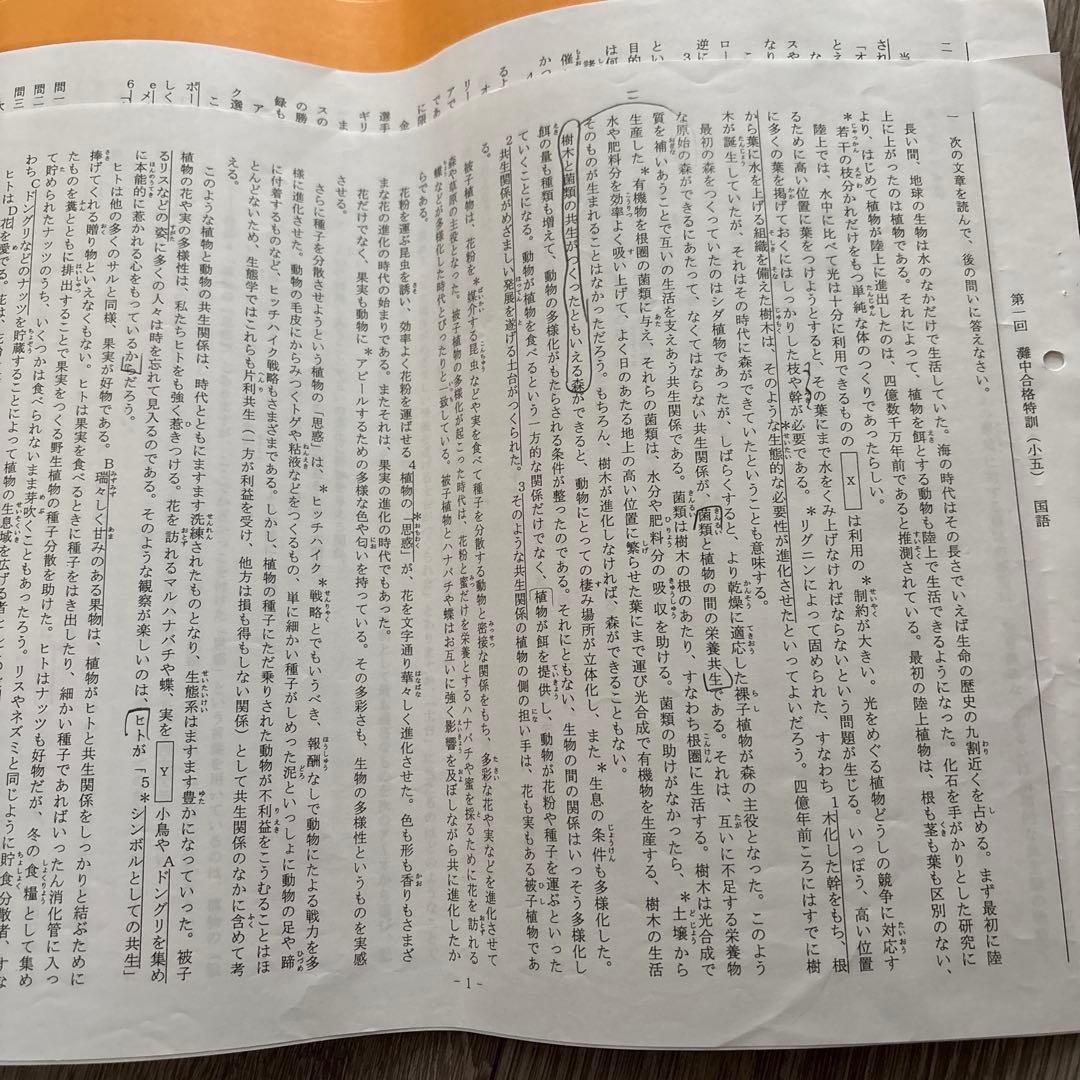 第一回 灘中合格特訓（小五） 国語
一 次の文章を読んで、後の問いに答えなさい。
長い間、地球の生物は水のなかだけで生活していた。海の時代はその長さでいえば生命の歴史の九割近くを占める。まず最初に陸
上に上がったのは植物である。それによって、植物を餌とする動物も陸上で生活できるようになった。化石を手がかりとした研究に
より、はじめて植物が陸上に進出したのは、四億数千万年前であると推測されている。最初の陸上植物は、根も茎も葉も区別のない、
＊若干の枝分かれだけをもつ単純な体のつくりであったらしい。
陸上では、水中に比べて光は十分に利用できるものの X は利用の＊制約が大きい。光をめぐる植物どうしの競争に対応す
るために高い位置に葉をつけようとすると、その葉にまで水をくみ上げなければならないという問題が生じる。いっぽう、高い位置
に多くの葉を掲げておくにはしっかりした枝や幹が必要である。＊リグニンによって固められた、すなわち1木化した幹をもち、根
から葉に水を上げる組織を備えた樹木は、そのような＊生態的な必要性が進化させたといってよいだろう。四億年前ころにはすでに樹
木が誕生していたが、それはその時代に森ができていたということも意味する。
最初の森をつくっていたのはシダ植物であったが、しばらくすると、より乾燥に適応した裸子植物が森の主役となった。このよう
な原始の森ができるにあたって、なくてはならない共生関係が、菌類と植物の間の栄養共生である。それは、互いに不足する栄養物
質を補いあうことで互いの生活を支えあう共生関係である。菌類は樹木の根のあたり、すなわち根圏に生活する。樹木は光合成で
生産した＊有機物を根圏の菌類に与え、それらの菌類は、水分や肥料分の吸収を助ける。菌類の助けがなかったら、＊土壌から
水や肥料分を効率よく吸い上げて、よく日のあたる地上の高い位置に繁らせた葉にまで運び光合成で有機物を生産する、樹木の生活
そのものが生まれることはなかっただろう。もちろん、樹木が進化しなければ、森ができることもない。
樹木と菌類の共生がつくったともいえる森ができると、動物にとっての棲み場所が立体化し、また＊生息の条件も多様化した。
餌の量も種類も増えて、動物の多様化がもたらされる条件が整ったのである。それにともない、生物の間の関係はいっそう多様化し
ていくことになる。動物が植物を食べるという一方的な関係だけでなく、植物が餌を提供し、動物が花粉や種子を運ぶといった
2共生関係がめざましい発展を遂げる土台がつくられた。3そのような共生関係の植物の側の担い手は、花も実もある被子植物であ
る。
被子植物は、花粉を＊媒介する昆虫などや実を食べて種子を分散する動物と密接な関係をもち、多彩な花や実などを進化させて
森や草原の主役となった。被子植物の多様化が起こった時代は、花粉と蜜だけを栄養とするハナバチや蜜を採るために花を訪れる
蝶などが多様化した時代とぴったりと一致している。被子植物とハナバチや蝶はお互いに強く影響を及ぼしながら共に進化したか
らである。
花粉を運ぶ昆虫を誘い、効率よく花粉を運ばせる4植物の「思惑」が、花を文字通り華々しく進化させた。色も形も香りもさまざ
まな花の進化の時代の始まりである。またそれは、果実の進化の時代でもあった。
花だけでなく、果実も動物に＊アピールするための多様な色や匂いを持っている。その多彩さも、生物の多様性というものを実感
させる。
さらに種子を分散させようという植物の「思惑」は、＊ヒッチハイク＊戦略とでもいうべき、報酬なしで動物にたよる戦力を多
様に進化させた。動物の毛皮にからみつくトゲや粘液などをつくるもの、単に細かい種子がしめった泥といっしょに動物の足や蹄
に付着するものなど、ヒッチハイク戦略もさまざまである。しかし、植物の種子にただ乗りされた動物が不利益をこうむることはほ
とんどないため、生態学ではこれらも片利共生（一方が利益を受け、他方は損も得もしない関係）として共生関係のなかに含めて考
える。
このような植物と動物の共生関係は、時代とともにますます洗練されたものとなり、生態系はますます豊かになっていった。被子
植物の花や実の多様性は、私たちヒトをも強く惹きつける。花を訪れるマルハナバチや蝶、実を Y 小鳥やAドングリを集め
るリスなどの姿に多くの人々は時を忘れて見入るのである。そのような観察が楽しいのは、ヒトが「5＊シンボルとしての共生」
に本能的に惹かれる心をもっているからだろう。
ヒトは他の多くのサルと同様、果実が好物である。B瑞々しく甘みのある果物は、植物がヒトと共生関係をしっかりと結ぶために
捧げてくれる贈り物といえなくもない。ヒトは果実を食べるときに種子をはき出したり、細かい種子であればいったん消化管に入っ
たものを糞とともに排出することで果実をつくる野生植物の種子分散を助けた。ヒトはナッツも好物だが、冬の食糧として集め
て貯められたナッツのうち、いくつかは食べられないまま芽吹くこともあったろう。リスやネズミと同じように貯食分散者、すな
わちCドングリなどのナッツを貯蔵することによって植物の生息域を広げる者として
ヒトはD花を愛でる。
- 1 -